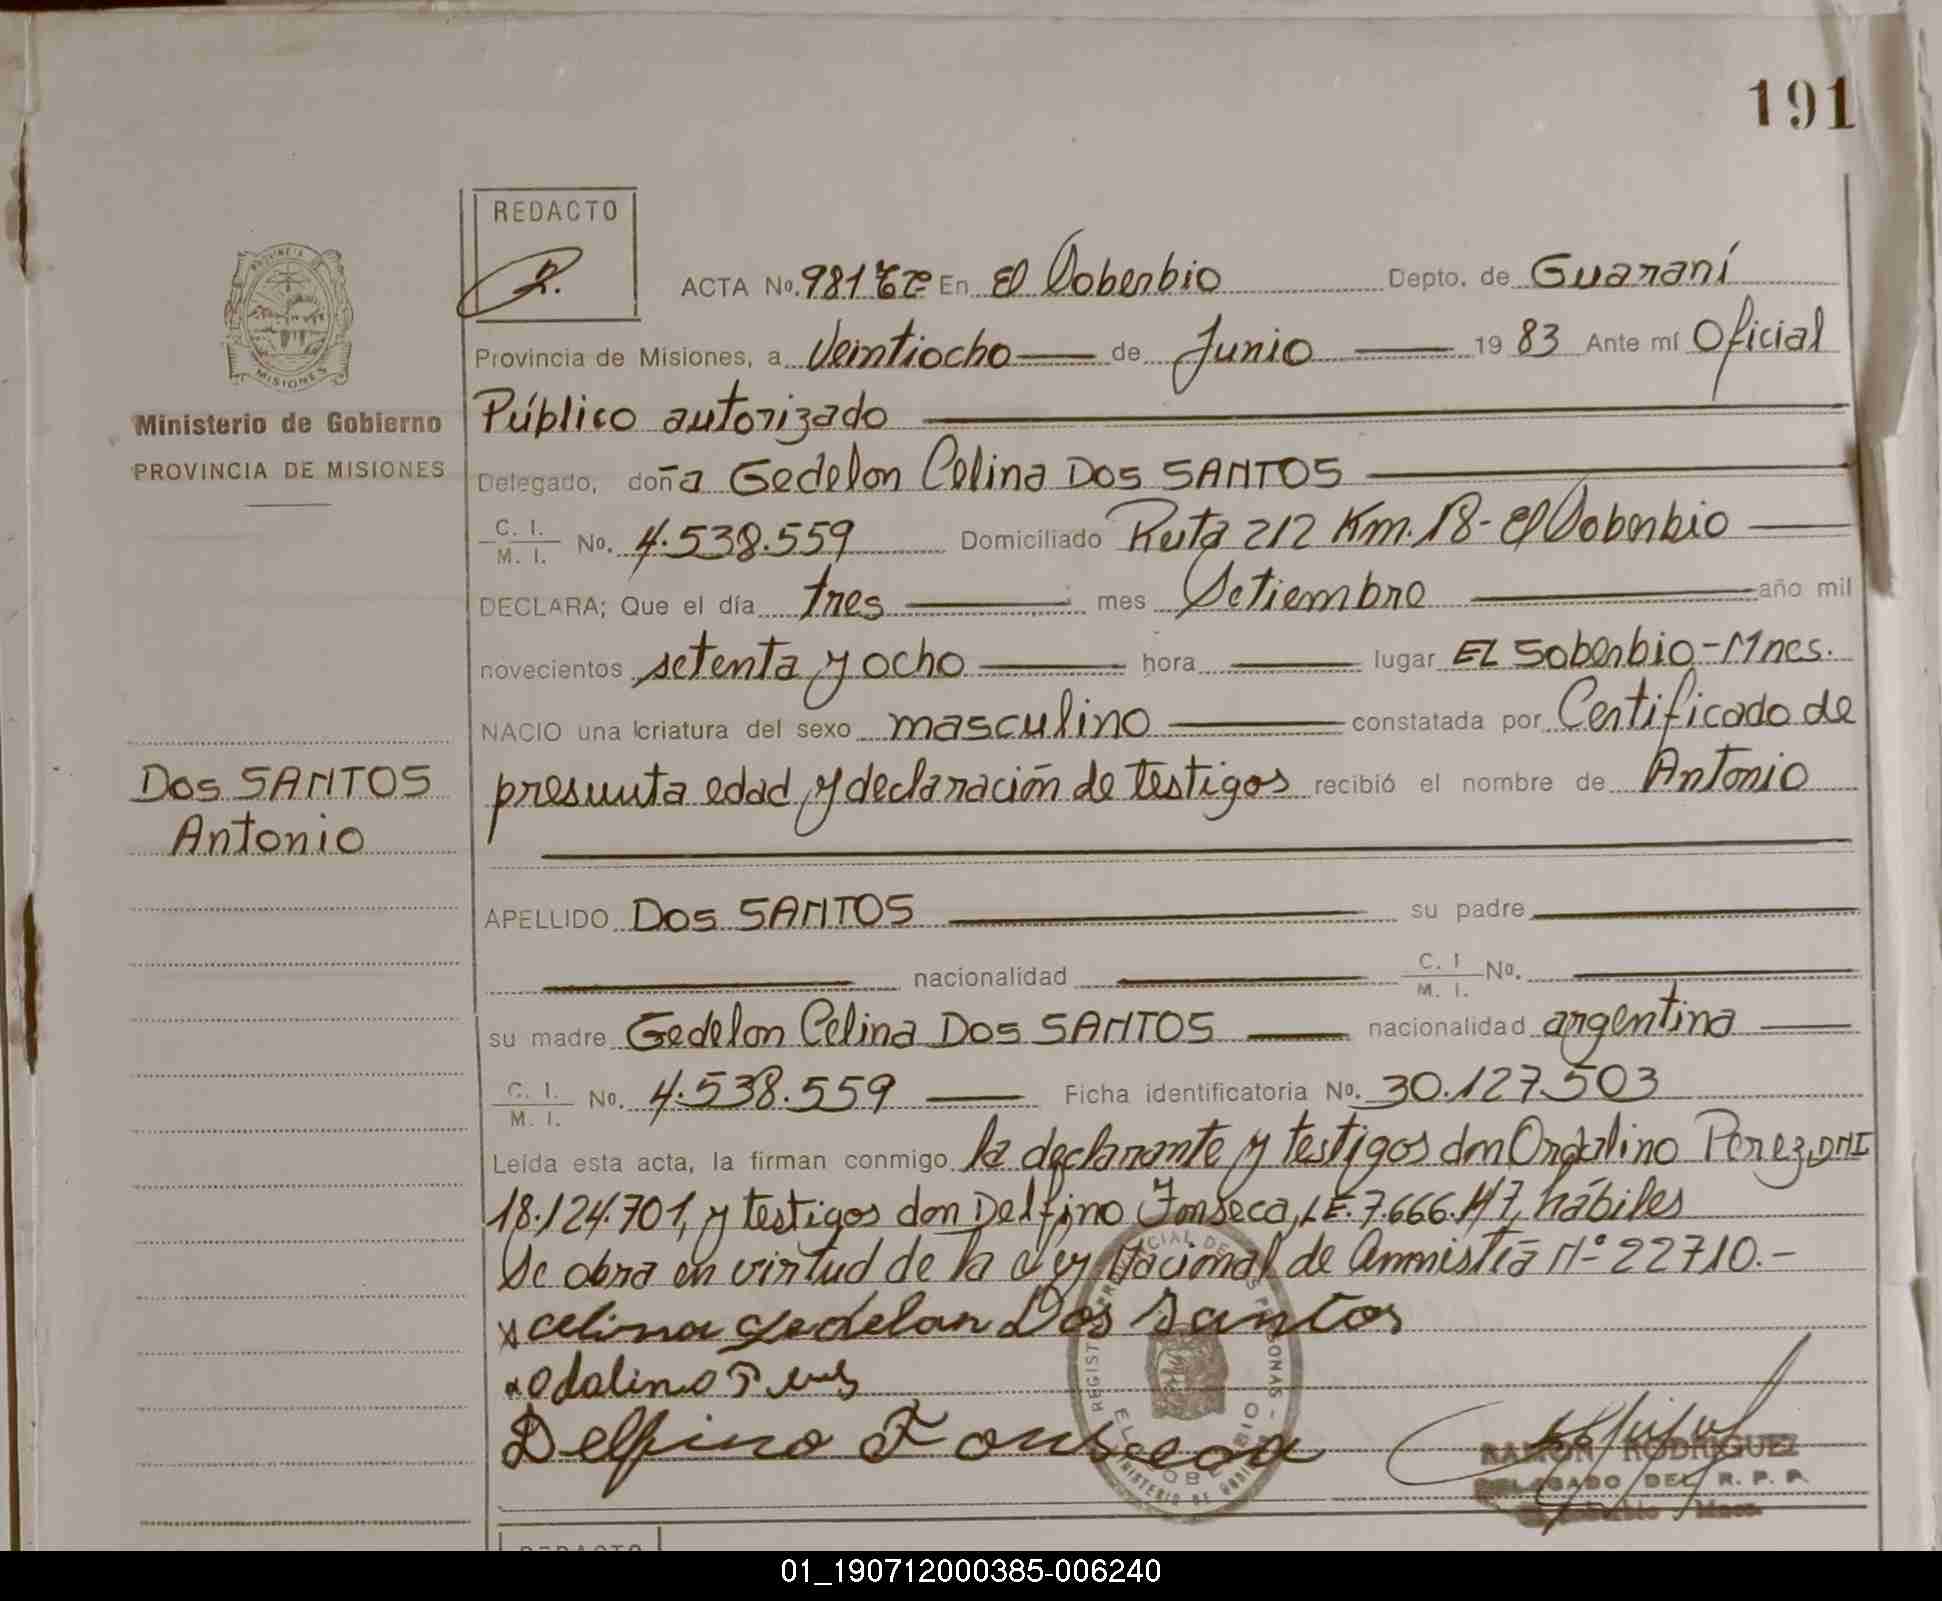 191
REDACTO
ACTA No. 981 En El Soberbio Depto. de Guaraní
Provincia de Misiones, a Veintiocho de Junio 1983 Ante mí Oficial
Público autorizado
Delegado, doña Gedelon Celina DOS SANTOS
C. I. M. I. No. 4.538.559 Domiciliado Ruta 212 Km. 18- El Soberbio
DECLARA; Que el día tres mes Setiembre año mil
novecientos setenta y ocho hora lugar EL Soberbio-Mnes.
NACIO una criatura del sexo masculino constatada por Certificado de
presunta edad y declaración de testigos recibió el nombre de Antonio
APELLIDO DOS SANTOS su padre
nacionalidad C. I M. I. No.
su madre Gedelon Celina DOS SANTOS nacionalidad argentina
C. I. M. I. No. 4.538.559 Ficha identificatoria No. 30.127.503
Leída esta acta, la firman conmigo la declarante y testigos don Perez, DNI
18.124.701, y testigos don Delfino Fonseca, L.E. 7.666. hábiles
Se obra en virtud de la Ley Nacional de Anmistía Nº 22710.-
celina gedelan Dos Santos
odalino
Delfino Fonseca
PROVINCIA
MISIONES
Ministerio de Gobierno
PROVINCIA DE MISIONES
DOS SANTOS
Antonio
REGISTRO PROVINCIAL DE LAS PERSONAS -
EL SOBERBIO
MINISTERIO DE GOBIERNO
RAMON RODRIGUEZ
DELEGADO DEL R. P. P.
El Soberbio Mnes.
REDACTO
01_190712000385-006240